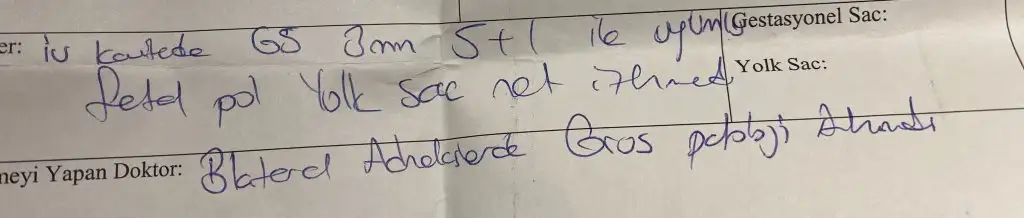 er: iu kavitede GS 3mm 5+1 ile uyumlu Gestasyonel Sac:
Fetal pol Yolk sac net izlenmedi Yolk Sac:
neyi Yapan Doktor: Bilateral Adnekslerde Gros patoloji Alınmadı